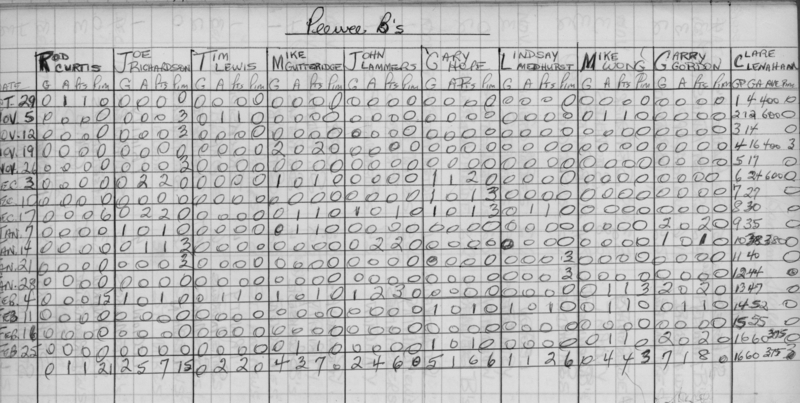 Peewee B's
ROD CURTIS JOE RICHARDSON TIM LEWIS MIKE GUTTERIDGE JOHN LAMMERS GARY LINDSAY MEDHURST MIKE WONG GARRY GORDON CLARE CLENAHAM
G A Pts Pim G A Pts Pim G A Pts Pim G A Pts Pim G A Pts Pim G A Pts Pim G A Pts Pim G A Pts Pim G A Pts Pim GP GA AVE Pim
T. 29 0 1 1 0 0 0 0 0 0 0 0 0 0 0 0 0 0 0 0 0 0 0 0 0 0 0 0 0 0 0 0 0 0 0 0 0 1 4 400 0
OV. 5 0 0 0 0 0 0 0 3 0 1 1 0 0 0 0 0 0 0 0 0 0 0 0 0 0 0 0 0 0 1 1 0 0 0 0 0 2 12 600 0
OV. 12 0 0 0 0 0 0 0 3 0 0 0 0 0 0 0 0 0 0 0 0 0 0 0 0 0 0 0 0 0 0 0 0 0 0 0 0 3 14 0
OV. 19 0 0 0 0 0 0 0 0 0 0 0 0 2 0 2 0 0 0 0 0 0 0 0 0 0 0 0 0 0 0 0 0 0 0 0 0 4 16 400 3
OV. 26 0 0 0 0 0 0 0 0 0 0 0 0 0 0 0 0 0 0 0 0 0 0 0 0 0 0 0 0 0 0 0 0 0 0 0 5 17 0
EC. 3 0 0 0 0 0 2 2 0 0 0 0 0 1 0 1 0 0 0 0 0 1 1 2 0 0 0 0 0 0 0 0 0 0 0 0 0 6 24 600 0
EC. 10 0 0 0 0 0 0 0 0 0 0 0 0 0 0 0 0 0 0 0 0 1 0 1 3 0 0 0 0 0 0 0 0 0 0 0 0 7 27 0
EC. 17 0 0 0 6 0 2 2 0 0 0 0 0 0 1 1 0 1 0 1 0 1 0 1 3 0 1 1 0 0 0 0 0 0 0 0 0 8 30 0
AN. 7 0 0 0 0 1 0 1 0 0 0 0 0 0 1 1 0 0 0 0 0 0 0 0 0 0 0 0 0 0 0 0 0 2 0 2 0 9 35 0
AN. 14 0 0 0 0 0 1 1 3 0 0 0 0 0 0 0 0 0 2 2 0 0 0 0 0 0 0 0 0 0 0 0 0 1 0 1 0 10 38 380 0
AN. 21 0 0 0 0 0 0 0 3 0 0 0 0 0 0 0 0 0 0 0 0 0 0 0 0 0 0 0 3 0 0 0 0 0 0 0 0 11 40 0
AN. 28 0 0 0 0 0 0 0 0 0 0 0 0 0 0 0 0 0 0 0 0 0 0 0 0 0 0 0 3 0 0 0 0 0 0 0 0 12 44 0
EB. 4 0 0 0 15 1 0 1 0 0 1 1 0 1 0 1 0 1 2 3 0 0 0 0 0 0 0 0 0 0 1 1 3 2 0 2 0 13 47 0
EB 11 0 0 0 0 0 0 0 0 0 0 0 0 0 0 0 0 0 0 0 0 1 0 1 0 1 0 1 0 0 1 1 0 0 1 1 0 14 52 0
EB. 16 0 0 0 0 0 0 0 0 0 0 0 0 0 0 0 0 0 0 0 0 0 0 0 0 0 0 0 0 0 0 0 0 0 0 0 0 15 55 0
EB 25 0 0 0 0 0 0 0 0 0 0 0 0 0 1 1 0 0 0 0 0 1 0 1 0 0 0 0 0 0 1 1 0 2 0 2 0 16 60 375 0
0 1 1 21 2 5 7 15 0 2 2 0 4 3 7 0 2 4 6 0 5 1 6 6 1 1 2 6 0 4 4 3 7 1 8 0 16 60 375 3